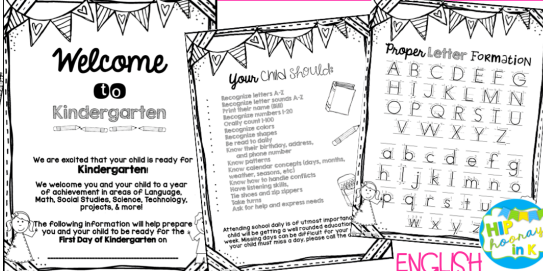 Welcome
to
Kindergarten
We are excited that your child is ready for
Kindergarten!
We welcome you and your child to a year
of achievement in areas of Language,
Math, Social Studies, Science, Technology,
projects, & more!
The following information will help prepare
you and your child to be ready for the
First Day of Kindergarten on
Your Child Should:
Recognize letters A-Z
Recognize letter sounds A-Z
Print their name (Bill)
Recognize numbers 1-20
Orally count 1-100
Recognize colors
Recognize shapes
Be read to daily
Know their birthday, address,
and phone number
Know patterns
Know calendar concepts (days, months,
weather, seasons, etc)
Know how to handle conflicts
Have listening skills,
Tie shoes and zip zippers
Take turns
Ask for help and express needs
Attending school daily is of utmost importan
child will be getting a well rounded education
week. Missing days can be difficult for your
your child must miss a day, please call the
Proper Letter Formation
A B C D E F G
H I J K L M N
O P Q R S T U
V W X Y Z
a b c d e f g
h i j k l m n o
p q r s t u
v w x y z
ENGLISH
HIP
hooray
in K